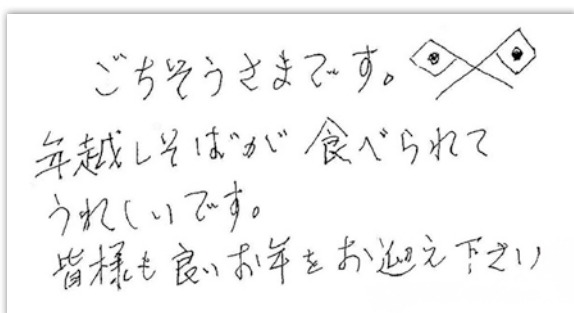 ごちそうさまです。
年越しそばが食べられて
うれしいです。
皆様も良いお年をお迎え下さい